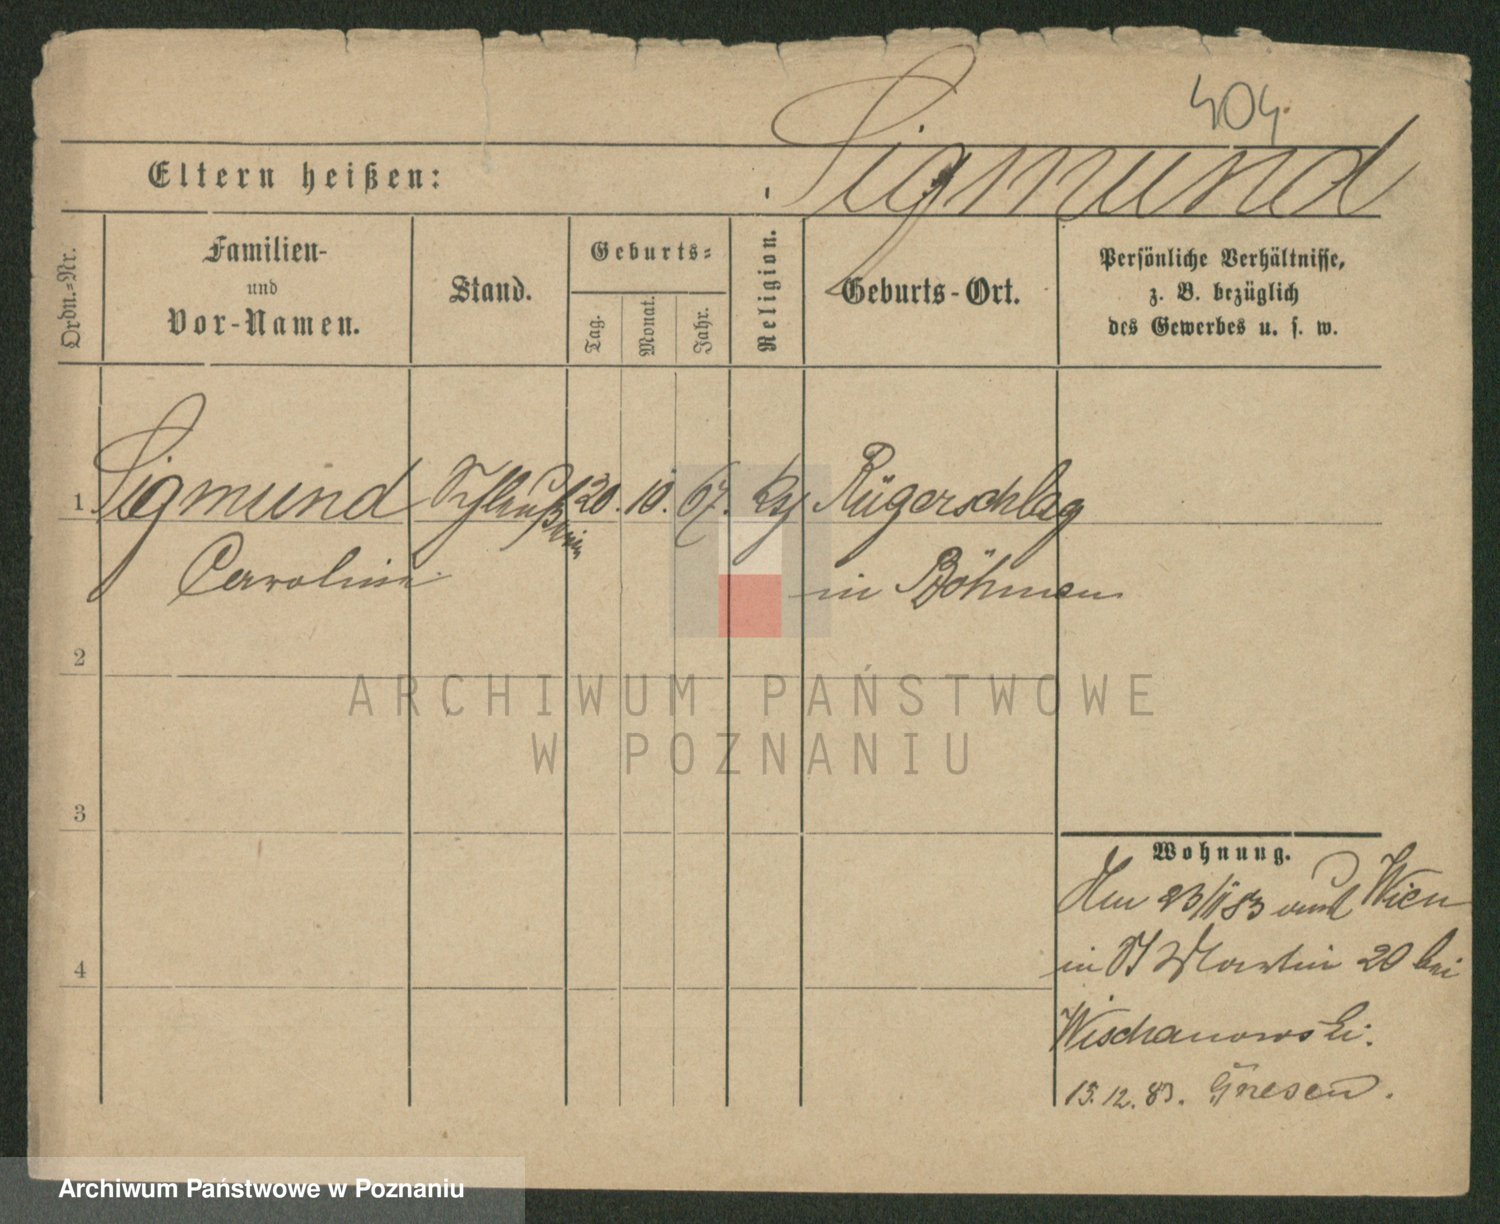 404.
Eltern heißen:
Sigmund
Ordn.-Nr.
Familien-
und
Vor-Namen.
Stand.
Geburts-
Tag.
Monat.
Jahr.
Religion.
Geburts-Ort.
Persönliche Verhältnisse,
z. B. bezüglich
des Gewerbes u. s. w.
1. Sigmund 20. 10. 67. Rügerschlag
Carolina in Böhmen
2
3
4
Wohnung.
23/11 83 Wien
in St Martin 20 bei
Wischanowski.
15.12.83. Gnesen.
ARCHIWUM PAŃSTWOWE
W POZNANIU
Archiwum Państwowe w Poznaniu